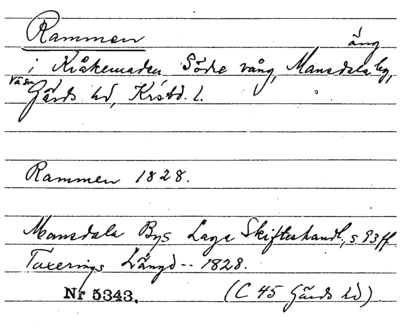 Rammen
äng
i Kråkemaden Södre vång, Mansdala by,
Gärds hd, Kristd. l.
Rammen 1828.
Mansdala Bys Laga Skifteshandl, s 93 ff
Taxerings Längd -- 1828.
Nr 5343. (C 45 Gärds hd)